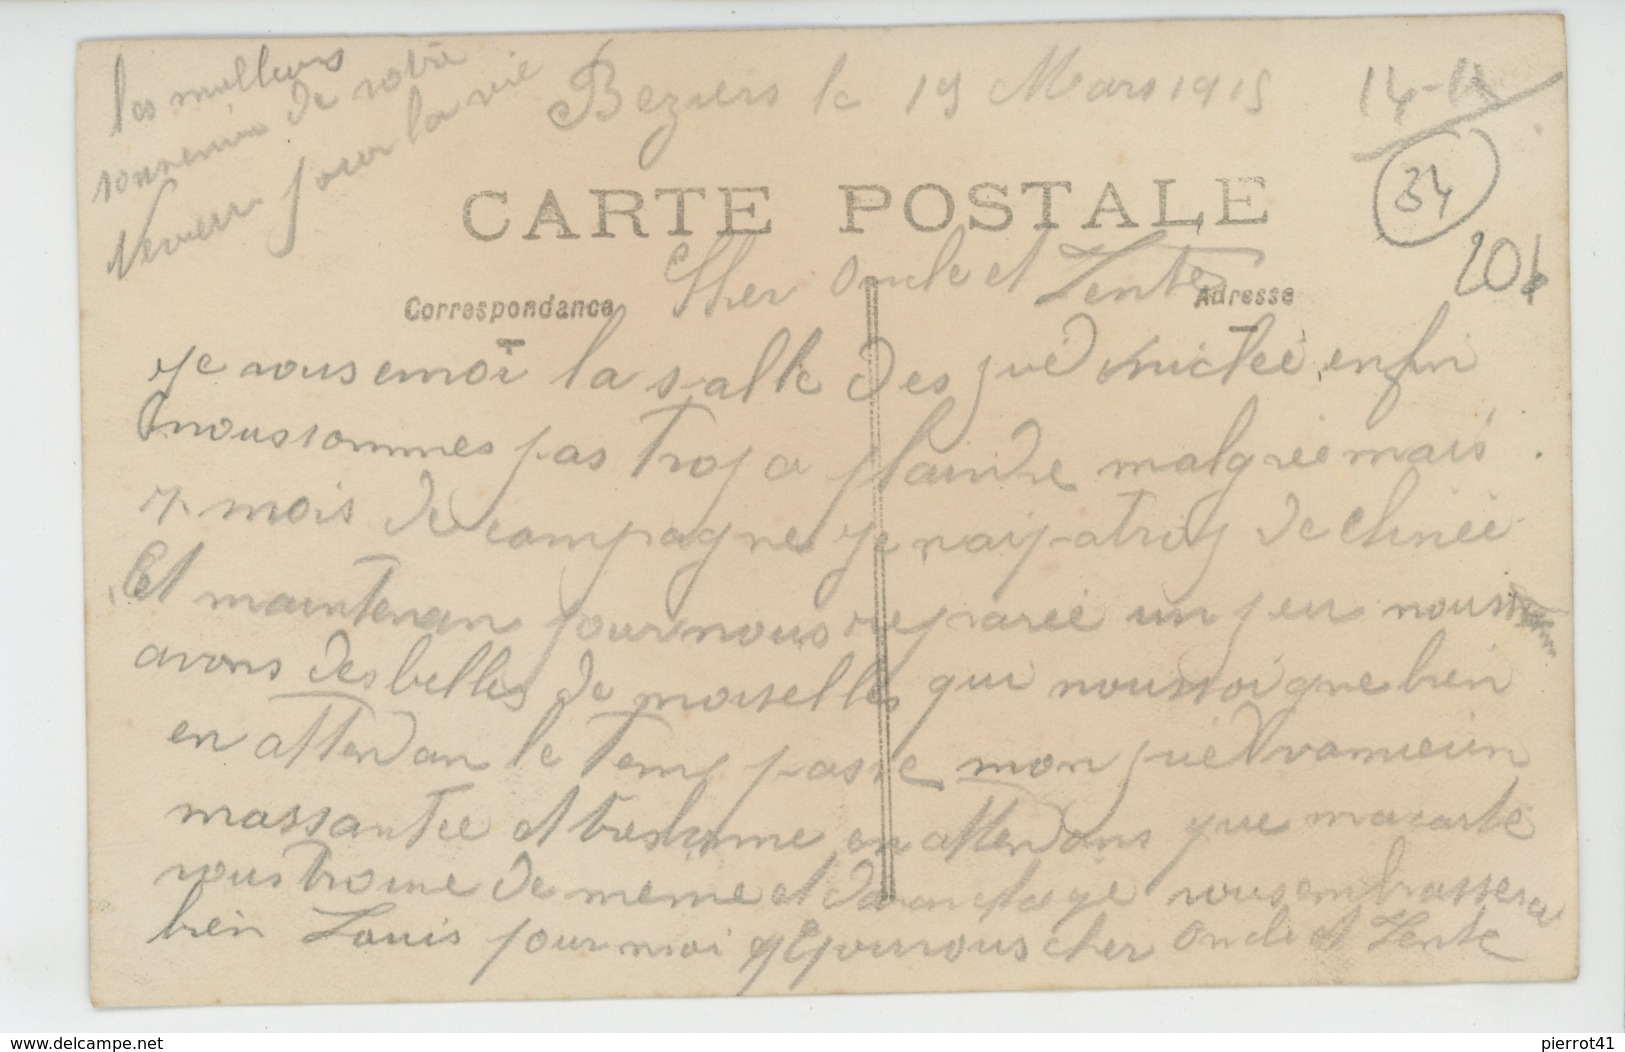 les meilleurs
souvenir de votre
Neveu pour la vie
Beziers le 19 Mars 1915
14-18
34
CARTE POSTALE
20
Cher Oncle et Tente
Correspondance
Adresse
je vous emoi la salle des que enfin
nous sommes pas trop a plaindre malgrée mais
7 mois de compagne je nai pa trop de chinee
Et maintenan pour nous reparée un peu nous
avons des belles de moiselles qui nous soigne bien
en attendan le temp passe mon pied va mieux
ma santée et tres bonne en attendans que ma carte
vous trouve de meme et davantage vous embrassera
bien Louis pour moi pour vous cher Oncle et Tente
www.delcampe.net
pierrot41